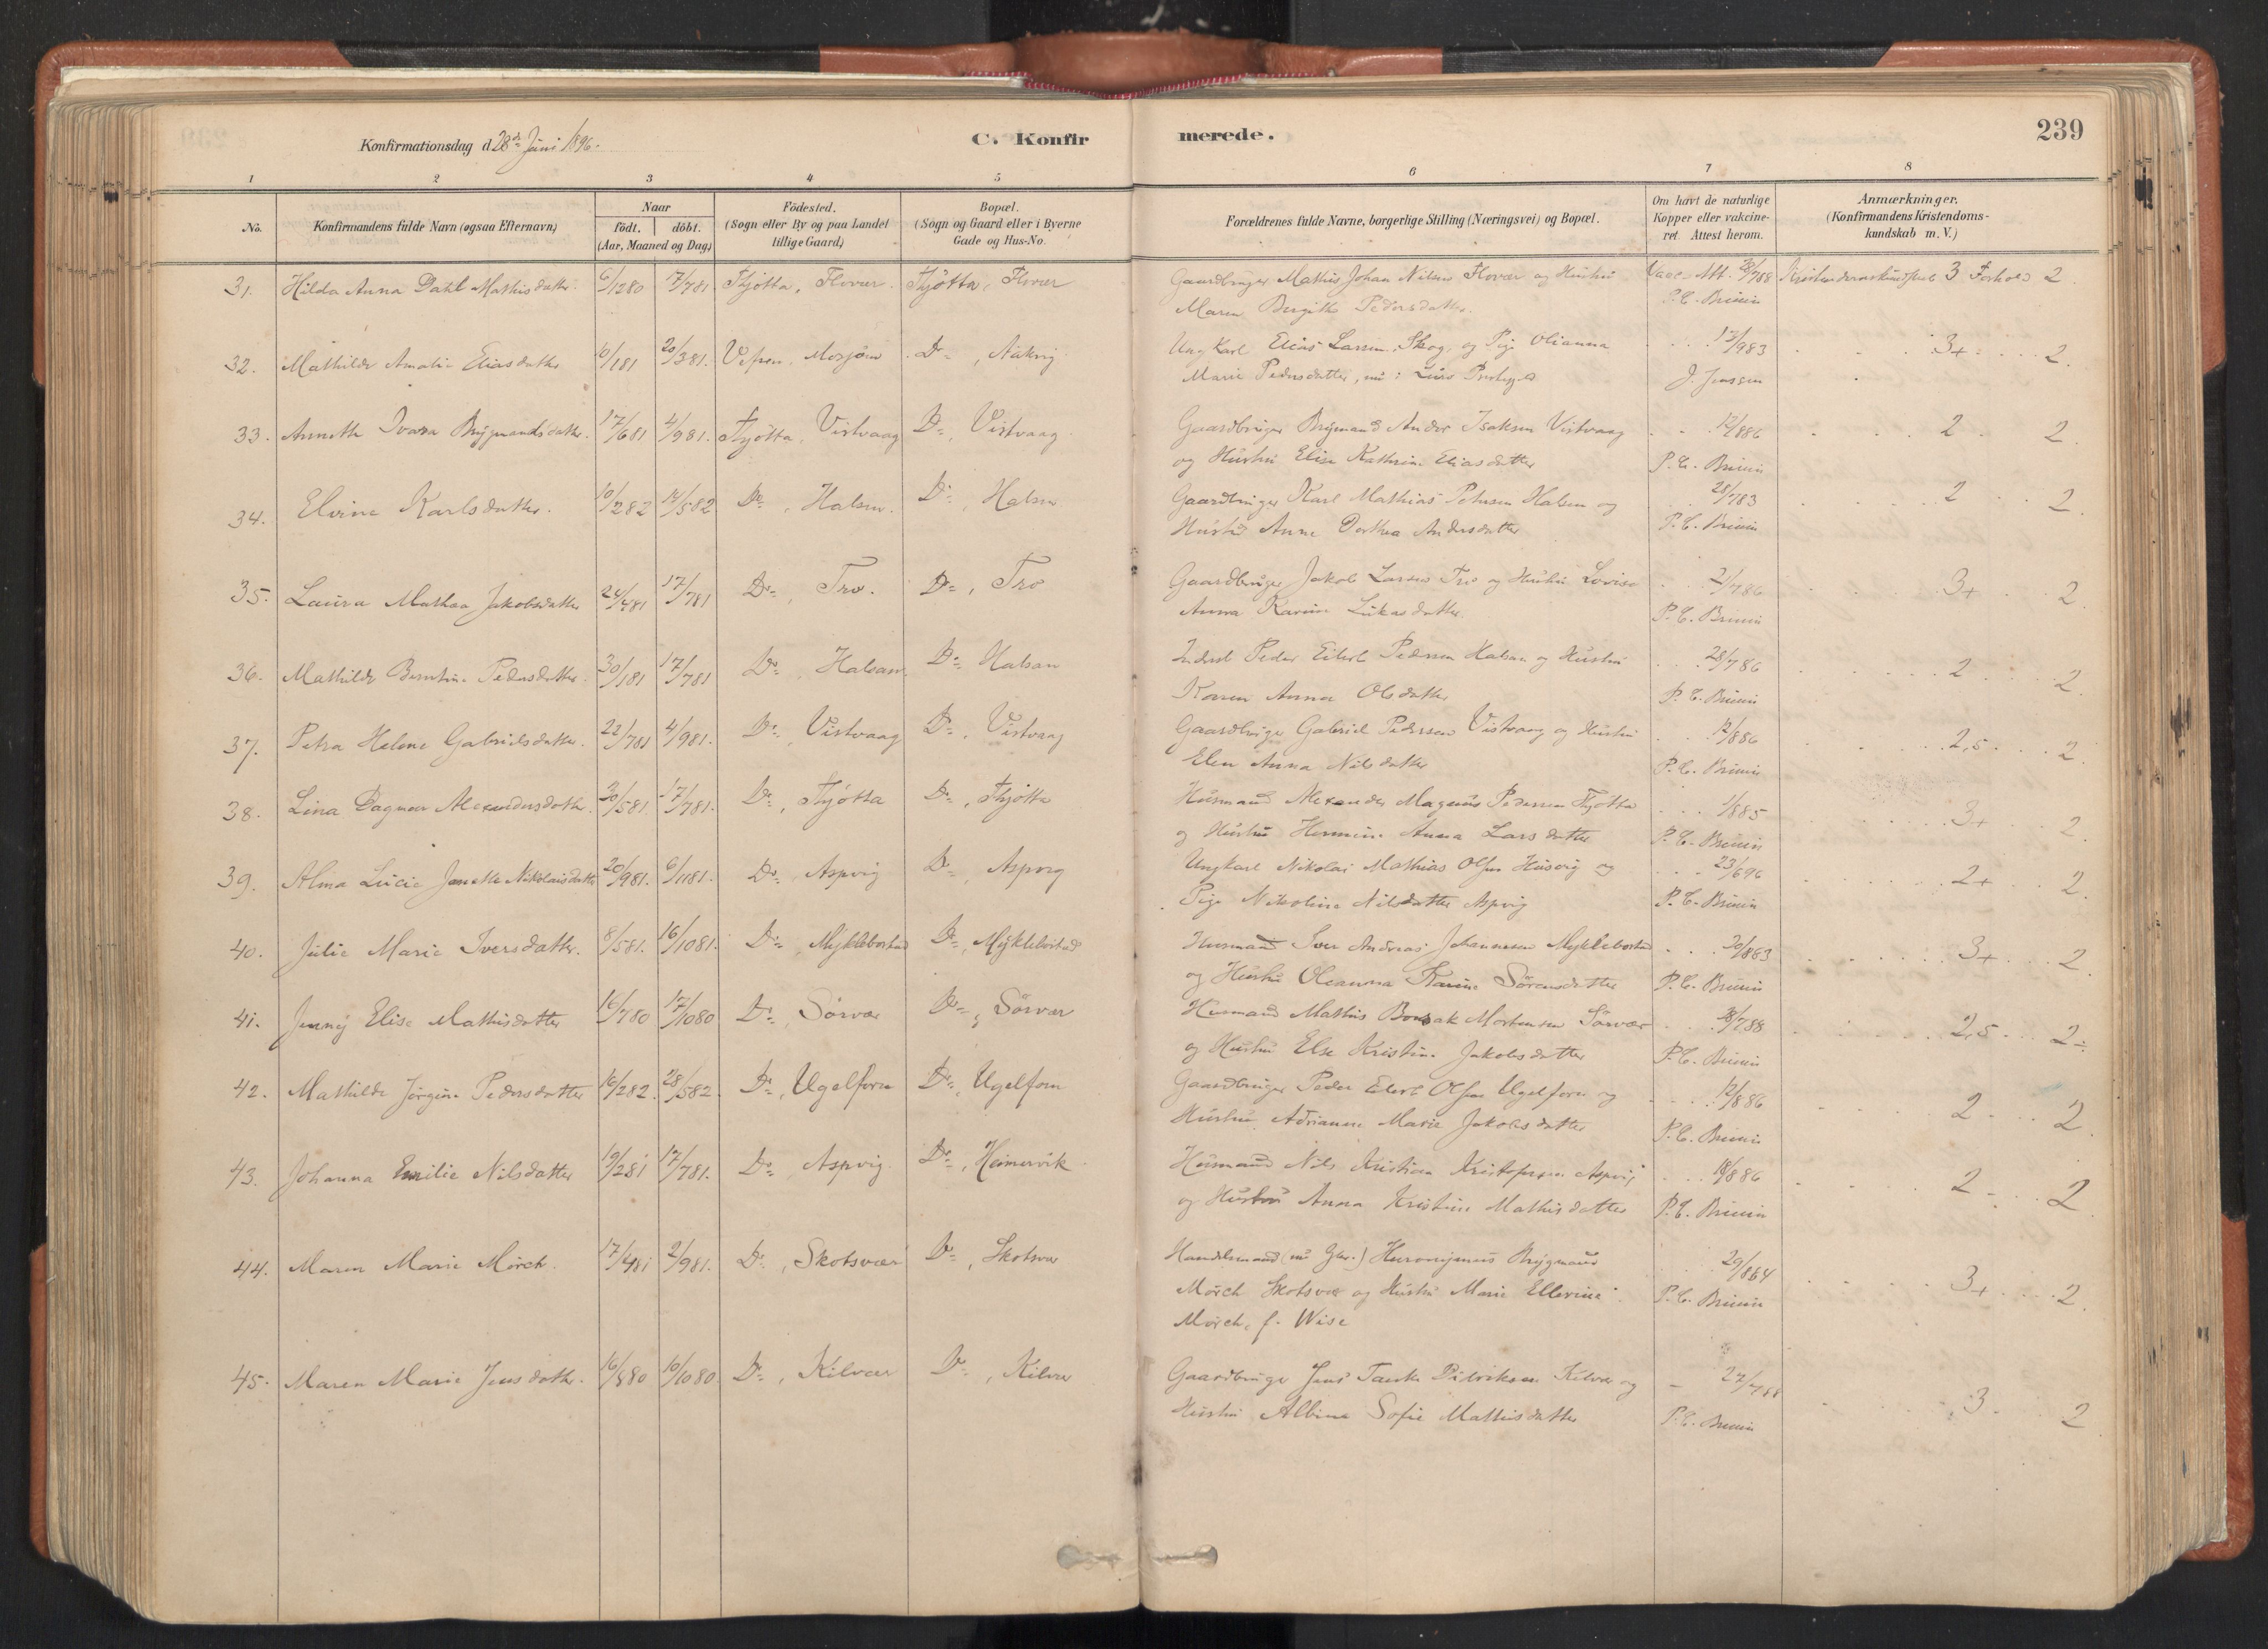 Konfirmationsdag d. 28de Juni 1896.
C. Konfirmerede.
239
1 2 3 4 5 6 7 8
No.
Konfirmandens fulde Navn (ogsaa Efternavn)
Naar
födt. döbt.
(Aar, Maaned og Dag)
Födested.
(Sogn eller By og paa Landet
tillige Gaard)
Bopæl.
(Sogn og Gaard eller i Byerne
Gade og Hus-No.
Forældrenes fulde Navne, borgerlige Stilling (Næringsvei) og Bopæl.
Om havt de naturlige
Kopper eller vakcine-
ret. Attest herom.
Anmærkninger.
(Konfirmandens Kristendoms-
kundskab m.V.)
31. Hilda Anna Dahl Mathisdatter. 6/1280 17/781 Thjötta, Flovær. Thjötta, Flovær
Gaardbruger Mathis Johan Nilsen Flovær og Hustru Vacc. Att. 28/788 3 Forhold 2
Maren Birgitte Pedersdatter. P.C. Brinin
32. Mathilde Amalie Eliasdatter 6/181 20/381. Vefsen, Mosjøen Do, Nakvig
Ungkarl Elias Larsen, Skog, og Pige Olianna 13/983 3+ 2.
Marie Pedersdatter, nu: Lurö J. Jenssen
33. Annette Ivara Brygmandsdatter. 17/681 4/981. Thjötta, Vistvaag Do, Vistvaag
Gaardbruger Brymand Andor Isaksen Vistvaag 12/886 2 2.
og Hustru Elise Kathrine Eliasdatter P.C. Brinin
34. Elvine Karlsdatter. 10/282 14/582 Do, Halsen. Do, Halsen
Gaardbruger Karl Mathias Petersen Halsen og 28/783 2 2.
Hustru Anne Dorthea Andersdatter P.C. Brinin
35. Laura Mathea Jakobsdatter 24/481 17/781 Do, Tro. Do, Tro
Gaardbruger Jakob Larsen Tro og Hustru Lovise 2/786 3+ 2.
Anna Karine Lukasdatter. P.C. Brinin
36. Mathilde Berntine Pedersdatter. 30/181 17/781 Do, Halsan. Do, Halsan
Inderst Peder Eilert Pedersen Halsan og Hustru 28/786 2 2.
Karen Anna Olsdatter P.C. Brinin
37. Petra Helene Gabrielsdatter. 22/781 4/981. Do, Vistvaag Do, Vistvaag
Gaardbruger Gabriel Pedersen Vistvaag og Hustru 12/886 2,5 2.
Elen Anna Nilsdatter P.C. Brinin
38. Lina Dagmar Alexandersdatter. 30/581 17/781. Do, Thjötta Do, Thjötta
Husmand Alexander Magnus Pedersen Thjötta 1/885 3+ 2.
og Hustru Hermine Anna Larsdatter P.C. Brinin
39. Alma Lucie Janette Nikolaisdatter 20/981. 6/1181. Do, Aspvig Do, Aspvig
Ungkarl Nikolai Mathias Olsen Husvig og 23/696 2+ 2.
Pige Nikoline Nilsdatter Aspvig P.C. Brinin
40. Julie Marie Iversdatter. 8/581. 16/1081. Do, Myklebostad Do, Myklebostad
Husmand Iver Andreas Johannesen Myklebostad 30/883 3+ 2.
og Hustru Oleanna Karine Sörensdatter P.C. Brinin
41. Jenny Elise Mathisdatter 16/780 17/1080 Do, Sörvær Do, Sörvær
Husmand Mathis Bonsak Mortensen Sörvær 28/788 2,5 2÷
og Hustru Else Kristine Jakobsdatter P.C. Brinin
42. Mathilde Jörgine Pedersdatter 16/282. 28/582. Do, Ugelforn Do, Ugelforn
Gaardbruger Peder Elert Olsen Ugelforn og 12/886 2 2.
Hustru Adrianne Marie Jakobsdatter P.C. Brinin
43. Johanna Emilie Nilsdatter 19/281 17/781. Do, Aspvig. Do, Heimervik.
Husmand Nils Kristian Kristofersen Aspvig 18/886 2 2
og Hustru Anna Kristine Mathisdatter P.C. Brinin
44. Maren Marie Mörch. 17/481 2/981. Do, Skotsvær Do, Skotsvær
Handelsmand (nu Gbr.) Heronymus Brygmand 29/884 3+ 2.
Mörch Skotsvær og Hustru Marie Ellevine P.C. Brinin
Mörch, f. Wise
45. Maren Marie Jensdatter. 16/880 10/1080 Do, Kilvær Do, Kilvær
Gaardbruger Jens Tank Didriksen Kilvær og 27/788 3 2
Hustru Albine Sofie Mathisdatter P.C. Brinin